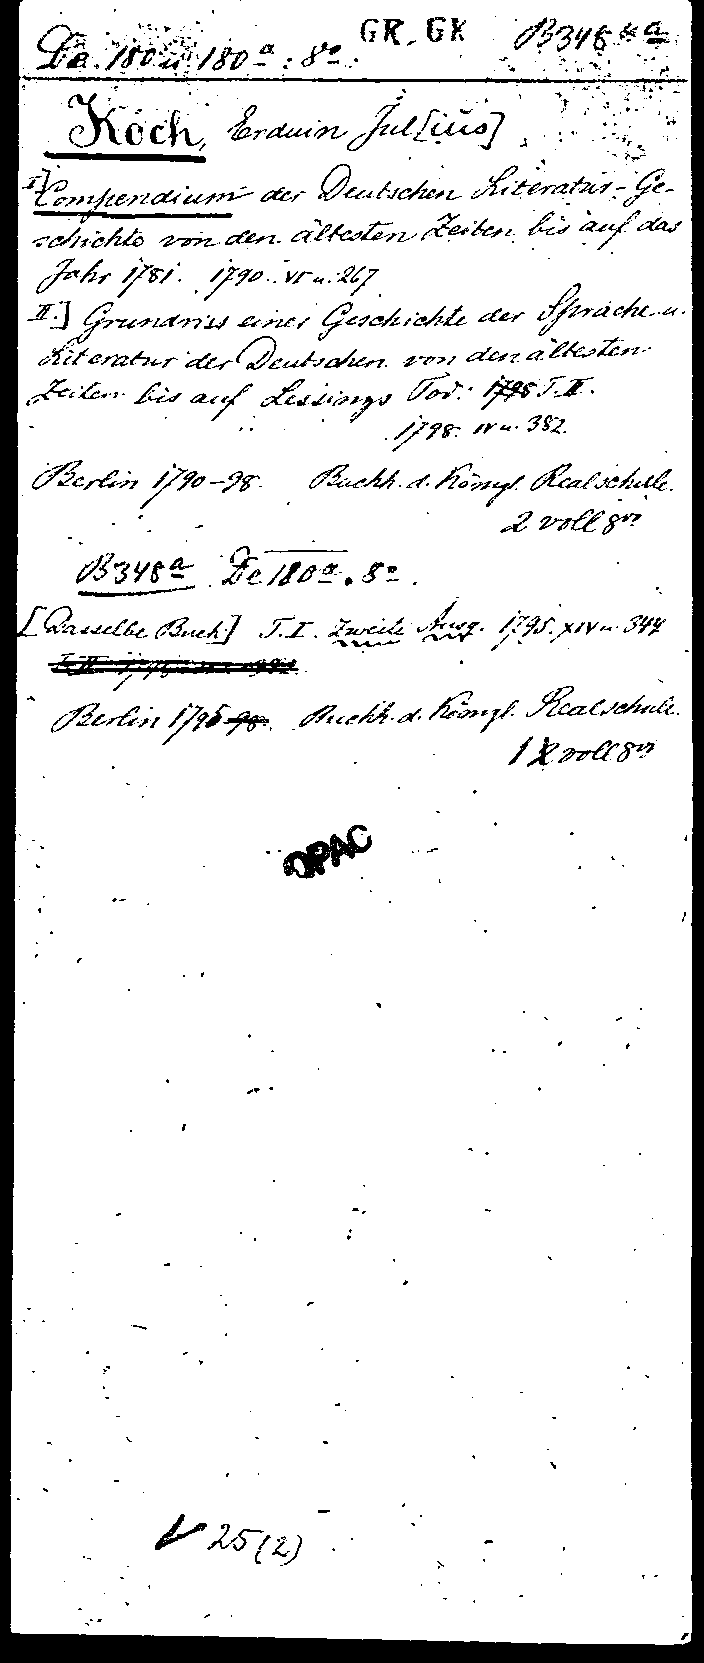 De. 180 u. 180a : 8o.
GR. GK
B348 u a
Koch, Erduin Jul[ius]
I] Compendium der Deutschen Literatur-Ge-
schichte von den ältesten Zeiten bis auf das
Jahr 1781. 1790. VI u. 267
II.] Grundriss einer Geschichte der Sprache u.
Literatur der Deutschen von den ältesten
Zeiten bis auf Lessings Tod. 1798 T. II.
1798. IV u. 382.
Berlin 1790-98. Buchh. d. Königl. Realschule.
2 voll 8vo
B348a De 180a. 8o.
[Dasselbe Buch] T. I. Zweite Ausg. 1795. XIV u. 344
Berlin 1795-98. Buchh. d. Königl. Realschule.
1 2 voll 8vo
OPAC
V 25(2)